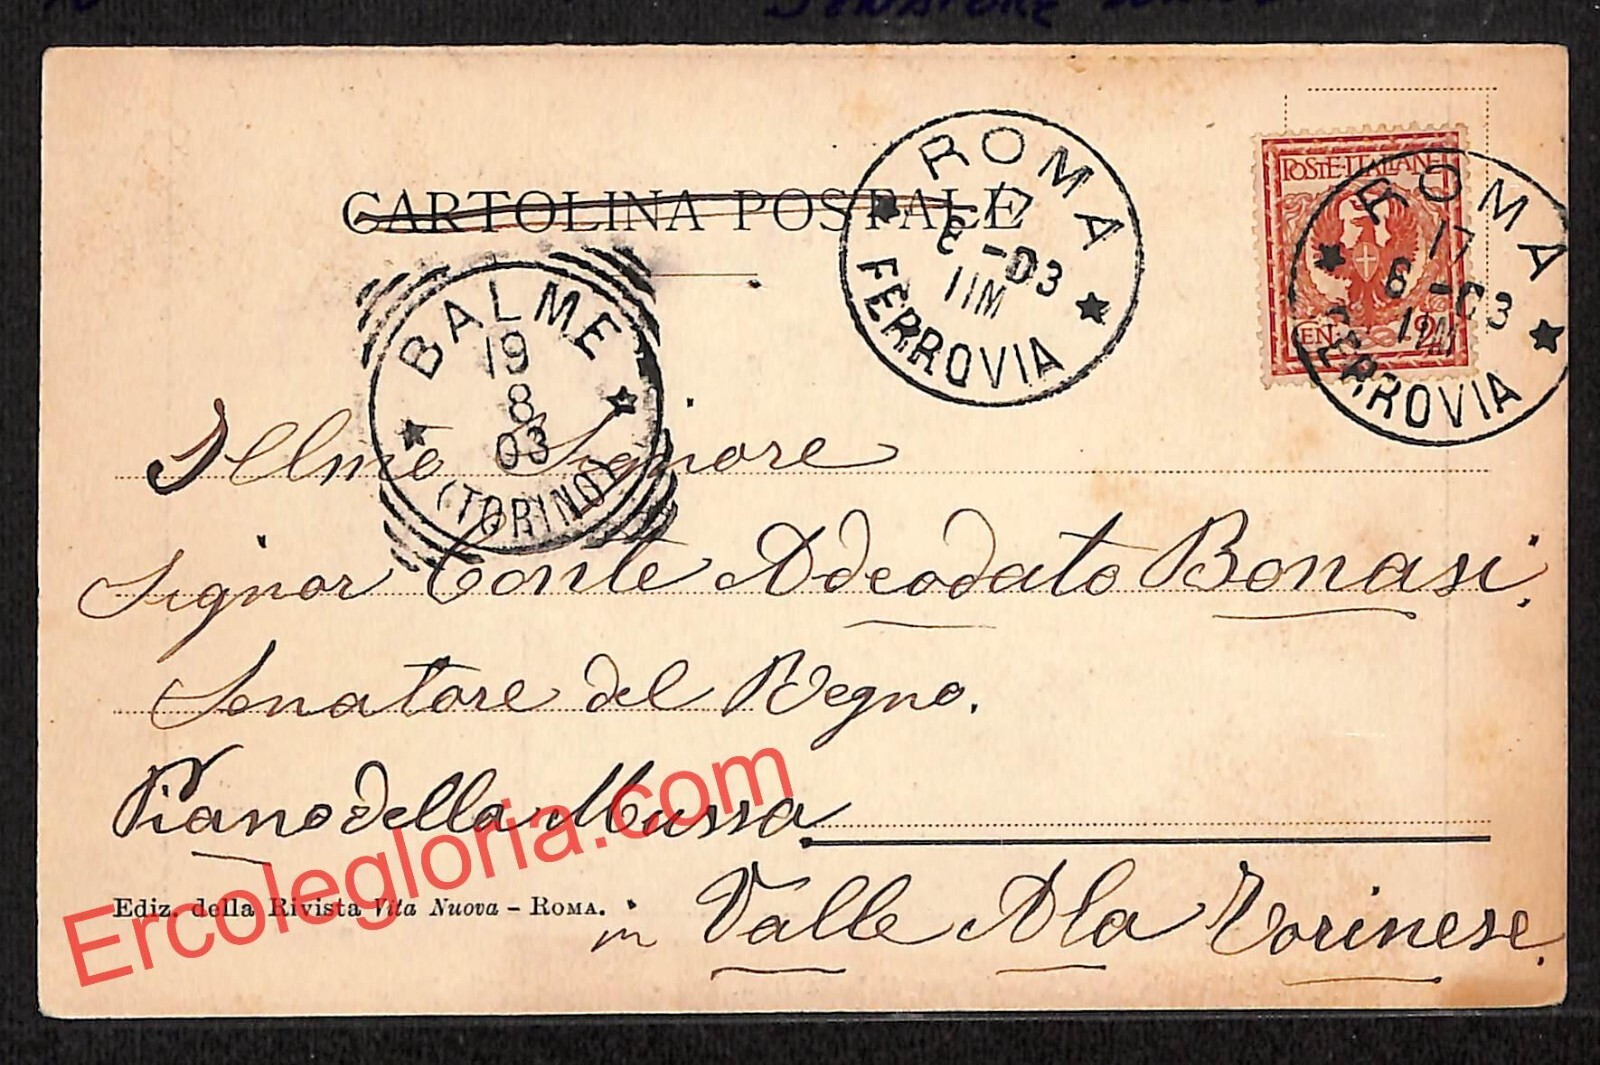 SENATORE
CARTOLINA POSTALE
ROMA
17
8 - 03
11M
FERROVIA
POSTE·ITALIANE
CEN. 2
ROMA
17
8 - 03
12M
FERROVIA
BALME
19
8
03
(TORINO)
Illmo Signore
Signor Conte Adeodato Bonasi.
Senatore del Regno.
Piano della Mussa
in Valle Ala Torinese.
Ediz. della Rivista Vita Nuova – ROMA.
Ercolegloria.com